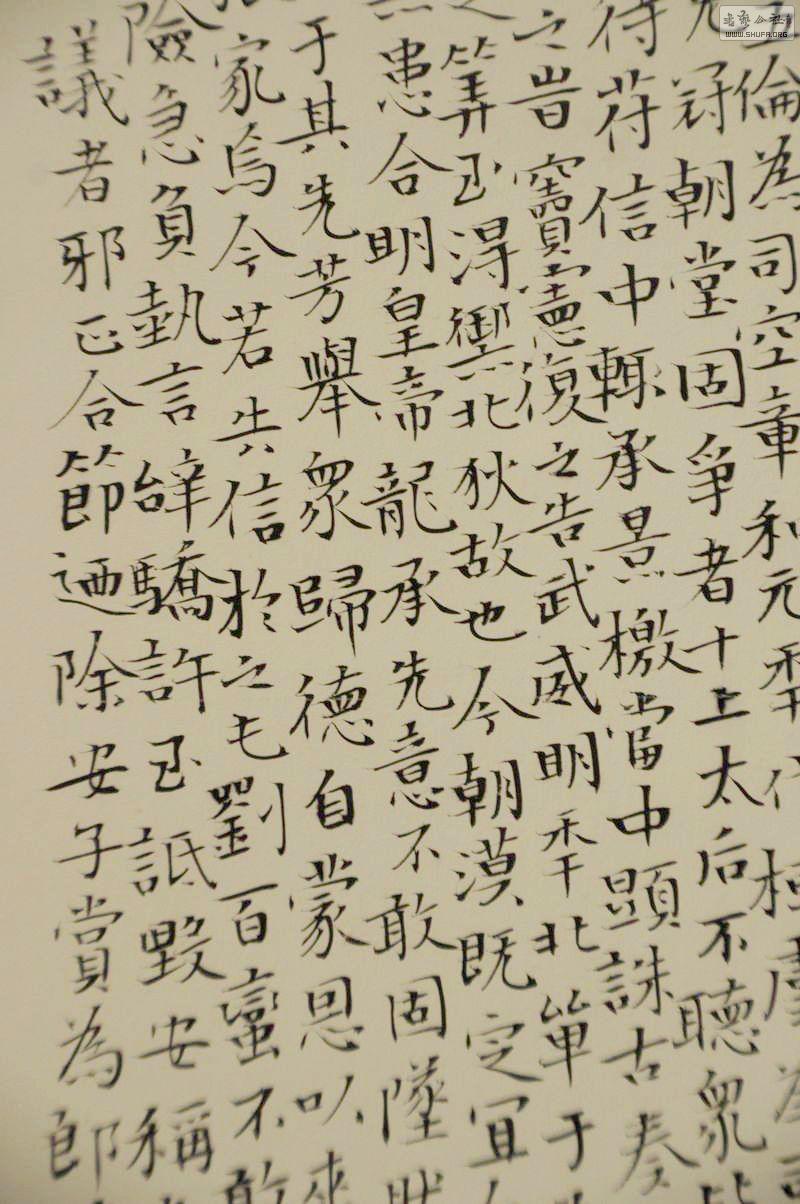 五倫為司空章和元年代桓虞為司
冠朝堂固爭者十上太后不聽眾
待苻信中輒承景檄當中顯誅古奏
之旹竇憲復之告武威明年北單于
之筭至得禦北狄故也今朝漠既定宜
患合明皇帝龍承先意不敢固墜
于其先芳舉眾歸德自蒙恩以來
家焉今若失信於之屯劉百蠻不敢
險急負埶言辭驕訐至詆毀安稱
議者邪正合節迺除安子賞為郎
書藝公社
WWW.SHUFA.ORG